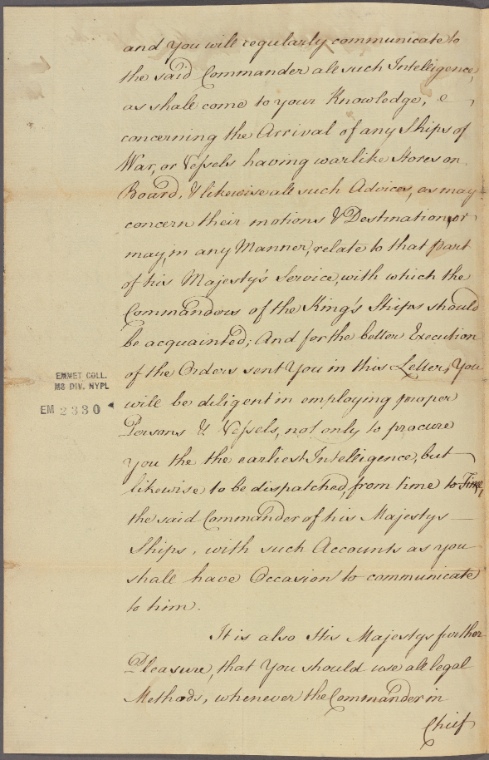 and you will regularly communicate to
the said Commander all such Intelligence,
as shall come to your Knowledge,
concerning the Arrival of any Ships of
War, or Vessels having warlike Stores on
Board, & likewise all such Advices, as may
concern their motions & Destination, or
may, in any Manner, relate to that part
of his Majesty's Service, with which the
Commanders of the King's Ships should
be acquainted; And for the better Execution
of the Orders sent You in this Letter, You
will be diligent in employing proper
Persons & Vessels, not only to procure
you the the earliest Intelligence, but
likewise to be dispatched, from time to Time,
the said Commander of his Majestys
Ships, with such Accounts as you
shall have Occasion to communicate
to him.
It is also His Majestys further
Pleasure, that You should use all legal
Methods, whenever the Commander in
Chief
EMMET COLL.
MS DIV. NYPL
EM 2330